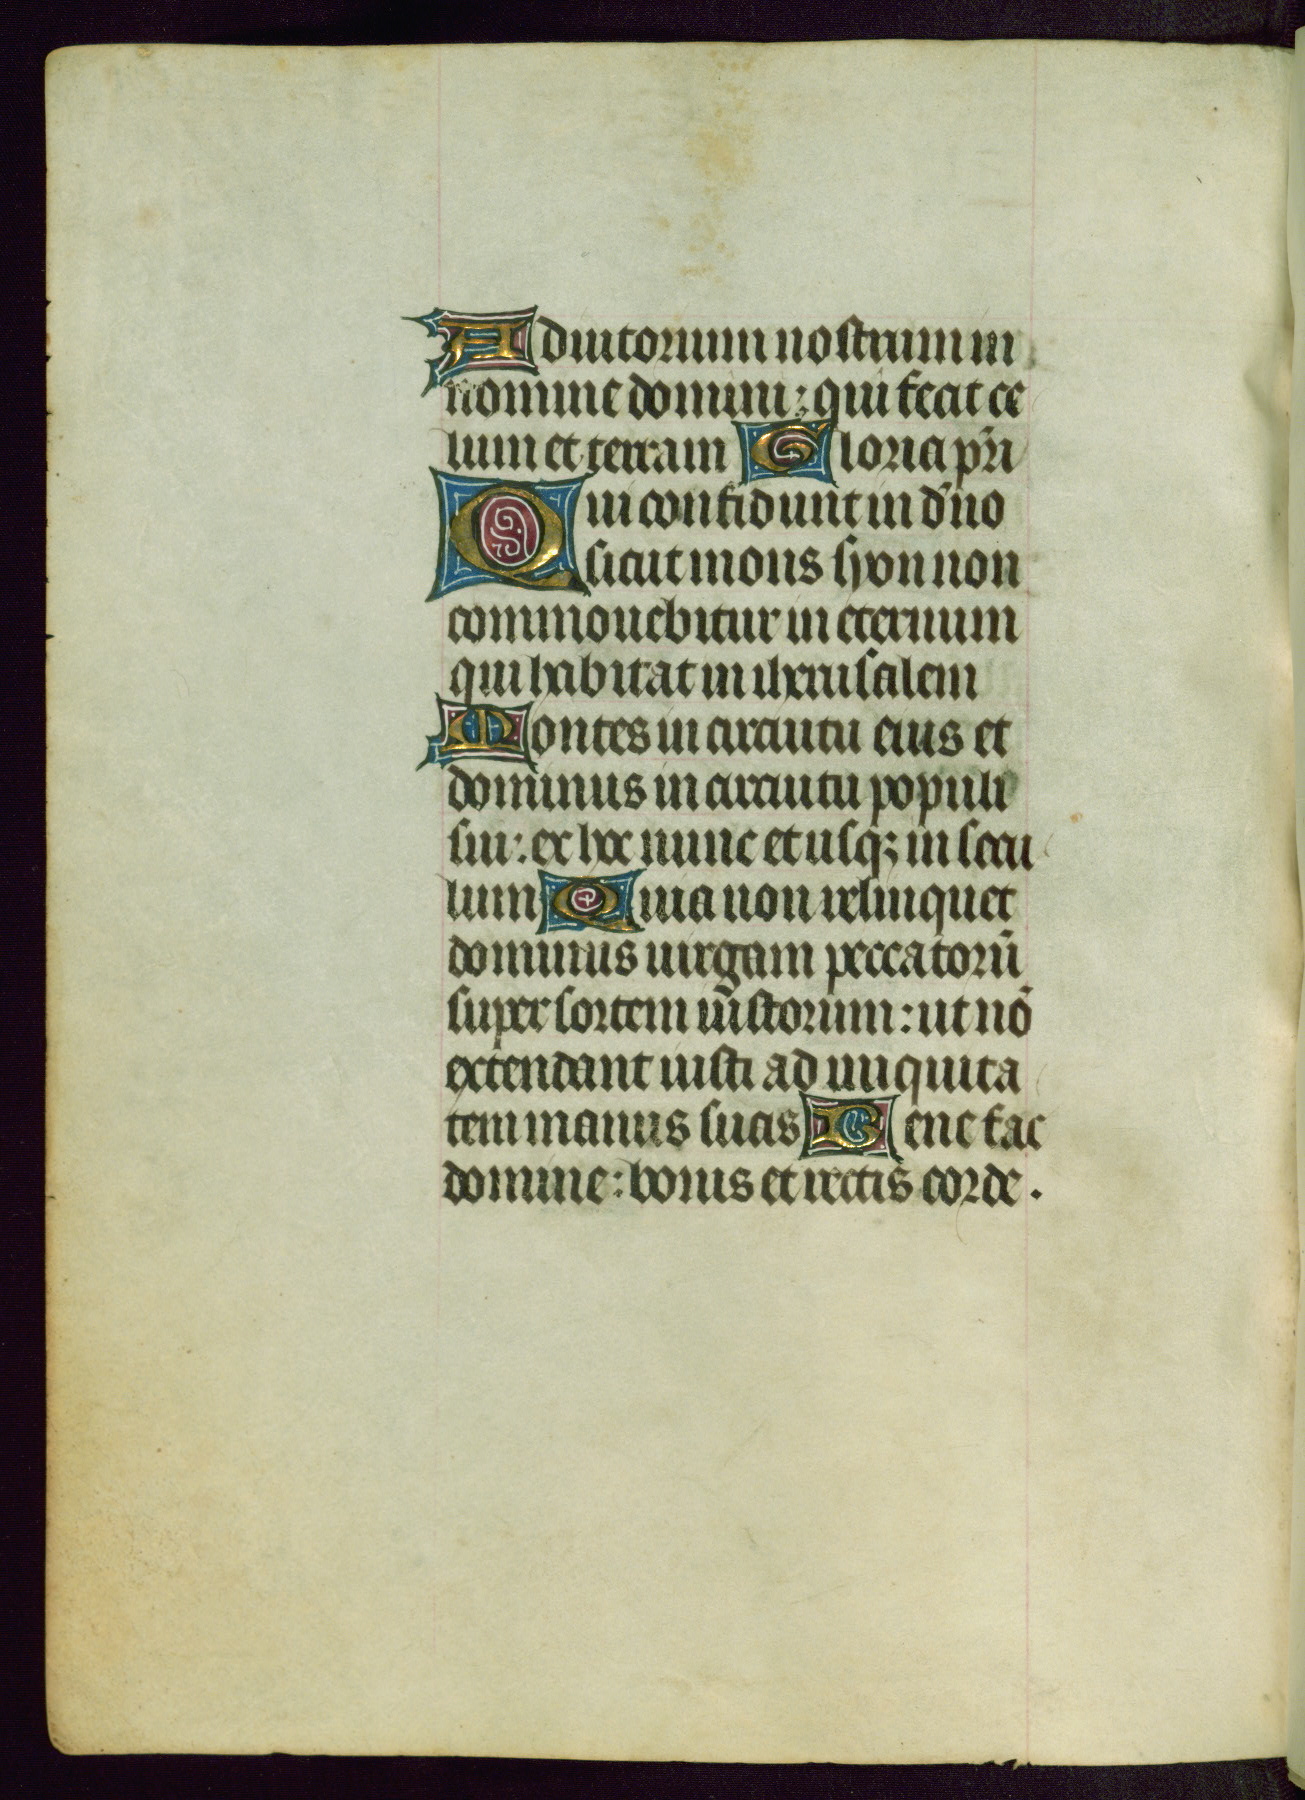 Adiutorium nostrum in
nomine domini: qui fecit ce
lum et terram Gloria pr̄i
Qui confidunt in dn̄o
sicut mons syon non
commouebitur in eternum
qui habitat in iherusalem
Montes in circuitu eius et
dominus in circuitu populi
sui: ex hoc nunc et usqꝫ in secu
lum Quia non relinquet
dominus uirgam peccatorū
super sortem iūstorum: ut nō
extendant iusti ad iniquita
tem manus suas Benefac
domine: bonis et rectis corde.